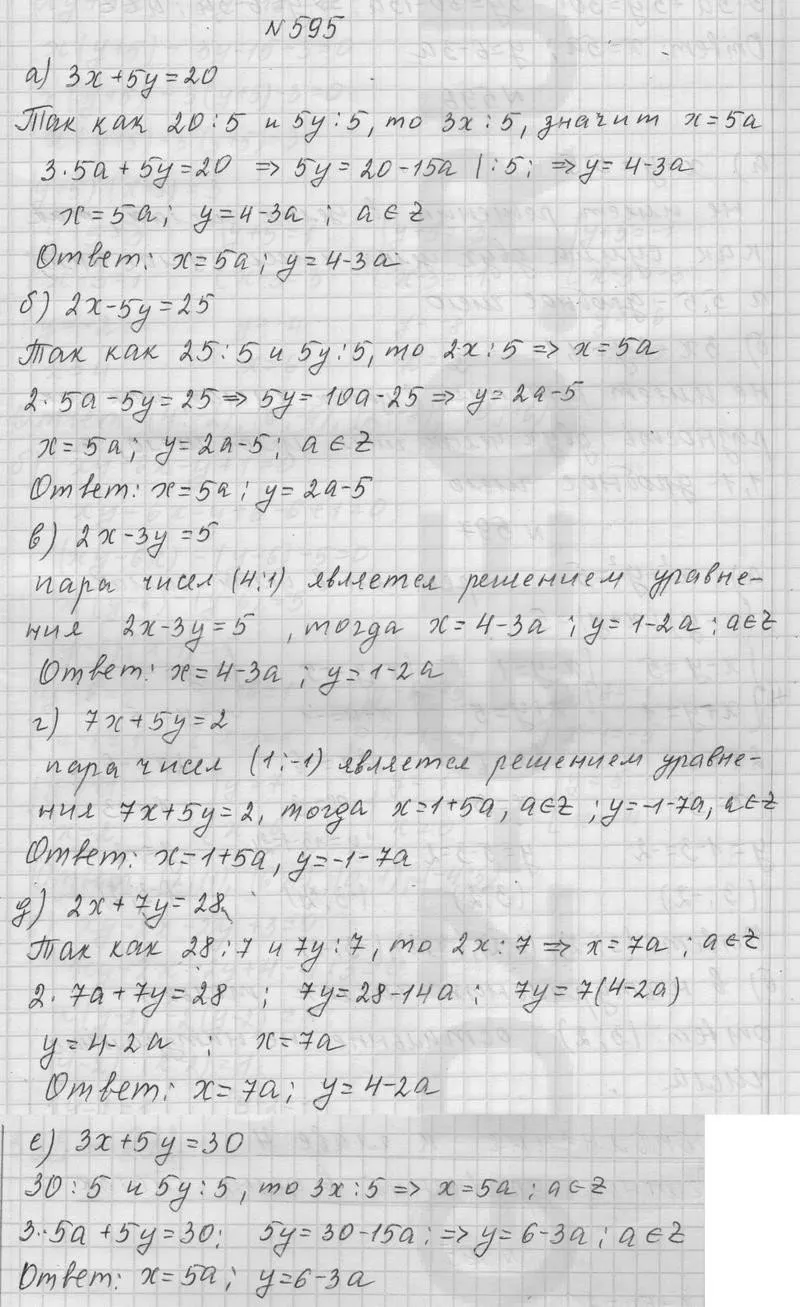 №595
а) 3x+5y=20
Так как 20:5 и 5y:5, то 3x:5, значит x=5a
3·5a+5y=20 => 5y=20-15a |:5; => y=4-3a
x=5a; y=4-3a; a∈Z
Ответ: x=5a; y=4-3a
б) 2x-5y=25
Так как 25:5 и 5y:5, то 2x:5 => x=5a
2·5a-5y=25 => 5y=10a-25 => y=2a-5
x=5a; y=2a-5; a∈Z
Ответ: x=5a; y=2a-5
в) 2x-3y=5
пара чисел (4;1) является решением уравне-
ния 2x-3y=5, тогда x=4-3a; y=1-2a; a∈Z
Ответ: x=4-3a; y=1-2a
г) 7x+5y=2
пара чисел (1;-1) является решением уравне-
ния 7x+5y=2, тогда x=1+5a, a∈Z; y=-1-7a, a∈Z
Ответ: x=1+5a, y=-1-7a
д) 2x+7y=28
Так как 28:7 и 7y:7, то 2x:7 => x=7a; a∈Z
2·7a+7y=28; 7y=28-14a; 7y=7(4-2a)
y=4-2a; x=7a
Ответ: x=7a; y=4-2a
е) 3x+5y=30
30:5 и 5y:5, то 3x:5 => x=5a; a∈Z
3·5a+5y=30; 5y=30-15a; => y=6-3a; a∈Z
Ответ: x=5a; y=6-3a